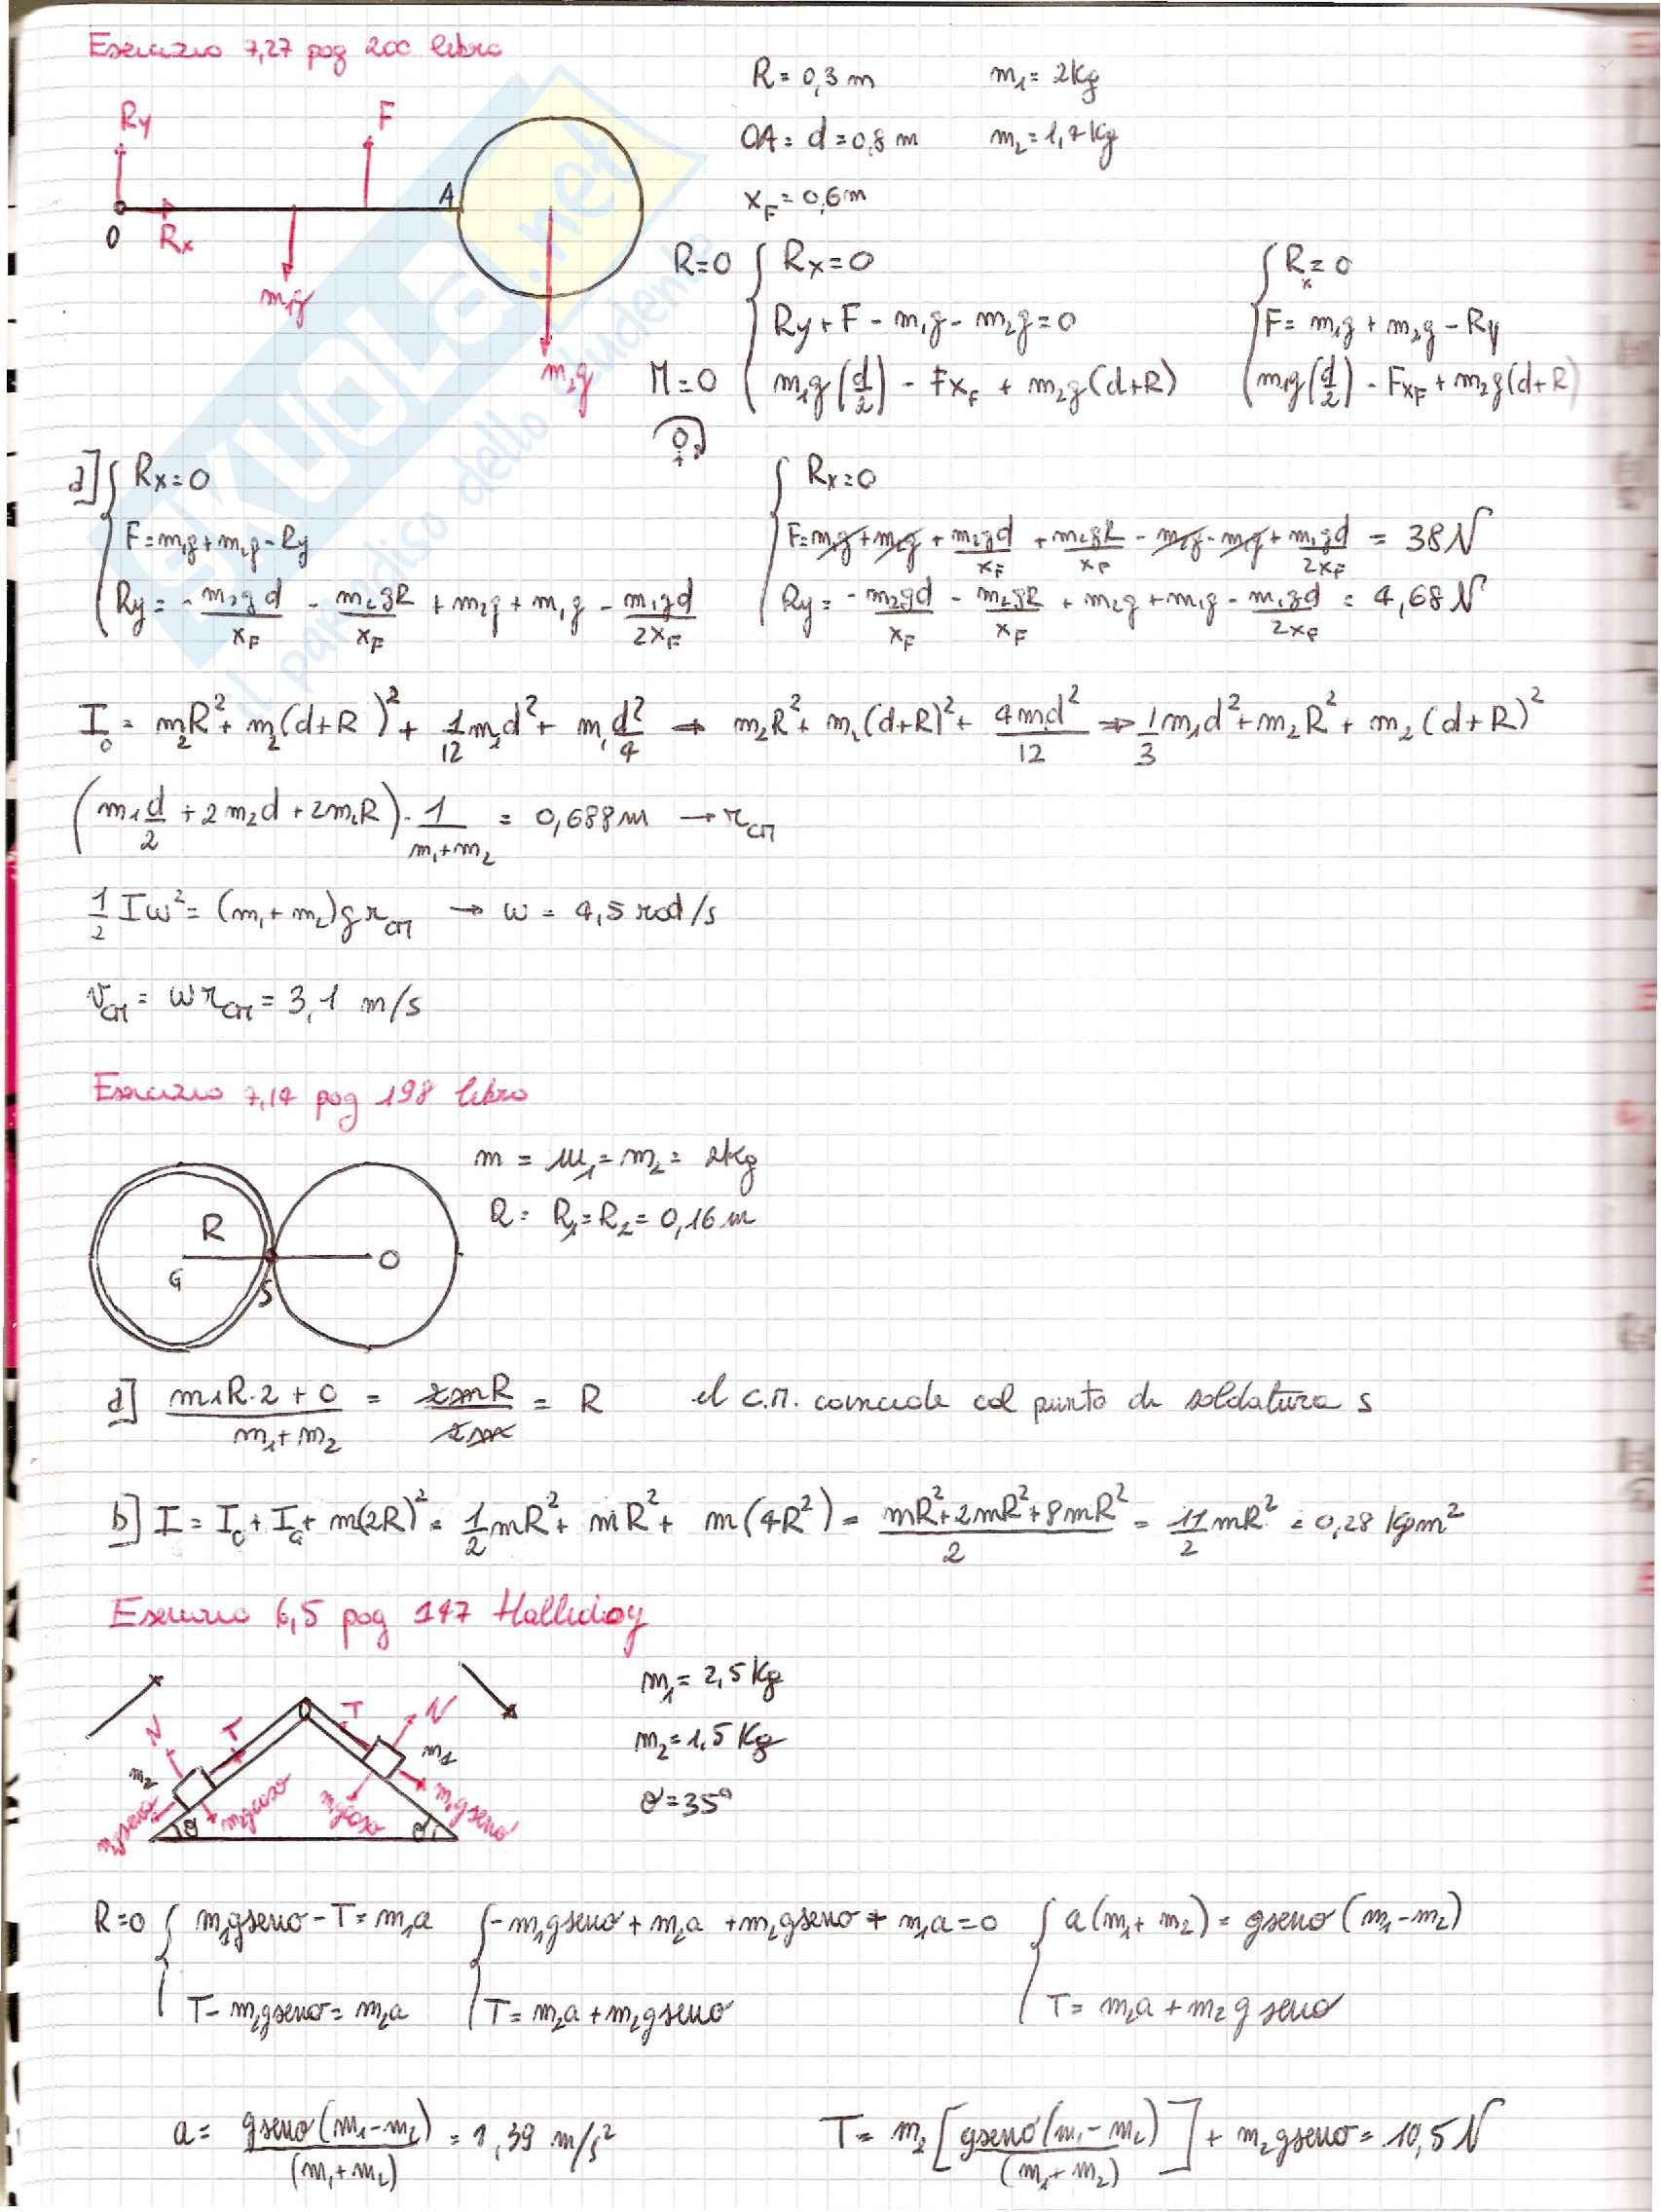 Esercizio 7,27 pag 200 libro
R = 0,3 m m₁ = 2 Kg
OA = d = 0,8 m m₂ = 1,7 Kg
x_F = 0,6 m
Ry F A
O Rx m₁g m₂g
R=0 { Rx = 0
Ry + F - m₁g - m₂g = 0
M=0 m₁g (d/2) - Fx_F + m₂g (d+R)
{ Rx = 0
F = m₁g + m₂g - Ry
m₁g (d/2) - Fx_F + m₂g (d+R)
a] { Rx = 0
F = m₁g + m₂g - Ry
Ry = - m₂gd/x_F - m₂gR/x_F + m₂g + m₁g - m₁gd/2x_F
{ Rx = 0
F = m₁g + m₂g + m₂gd/x_F + m₂gR/x_F - m₂g - m₁g + m₁gd/2x_F = 38 N
Ry = - m₂gd/x_F - m₂gR/x_F + m₂g + m₁g - m₁gd/2x_F = 4,68 N
I₀ = m₂R² + m₂(d+R)² + 1/12 m₁d² + m₁ d²/4 → m₂R² + m₂(d+R)² + 4m₁d²/12 → 1/3 m₁d² + m₂R² + m₂(d+R)²
(m₁ d/2 + 2m₂d + 2m₂R) · 1/(m₁+m₂) = 0,688 m → r_CM
1/2 Iω² = (m₁ + m₂) g r_CM → ω = 4,5 rad/s
v_CM = ω r_CM = 3,1 m/s
Esercizio 7,14 pag 198 libro
m = m₁ = m₂ = 2 Kg
R = R₁ = R₂ = 0,16 m
R G S O
a] (m₁R·2 + 0)/(m₁ + m₂) = 2mR/2m = R il C.M. coincide col punto di saldatura S
b] I = I_C + I_G + m(2R)² = 1/2 mR² + mR² + m(4R²) = (mR² + 2mR² + 8mR²)/2 = 11/2 mR² = 0,28 Kgm²
Esercizio 6,5 pag 147 Halliday
m₁ = 2,5 Kg
m₂ = 1,5 Kg
θ = 35°
N T T N
m₂ m₁
m₂gsenθ m₂gcosθ m₁gcosθ m₁gsenθ
θ θ
R=0 { m₁gsenθ - T = m₁a
T - m₂gsenθ = m₂a
{ -m₁gsenθ + m₂a + m₂gsenθ + m₁a = 0
T = m₂a + m₂gsenθ
{ a(m₁ + m₂) = gsenθ (m₁ - m₂)
T = m₂a + m₂g senθ
a = gsenθ(m₁ - m₂)/(m₁ + m₂) = 1,39 m/s²
T = m₂ [gsenθ(m₁ - m₂)/(m₁ + m₂)] + m₂gsenθ = 10,5 N
SKUOLA.net
il paradiso dello studente